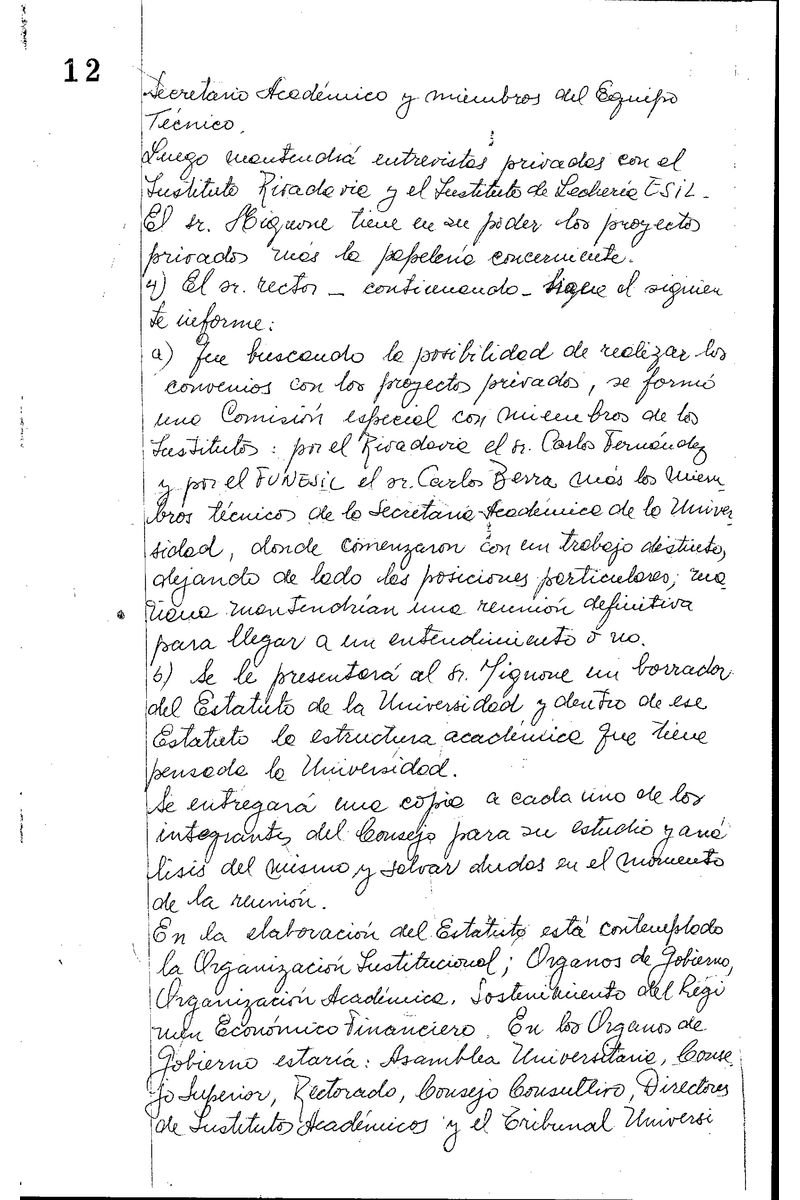 12
Secretario Académico y miembros del Equipo
Técnico.
Luego mantendrá entrevistas privadas con el
Instituto Rivadavia y el Instituto de Lechería ESIL.
El sr. Mignone tiene en su poder los proyectos
privados más la papelería concerniente.
4) El sr. rector - continuando - sigue el siguien
te informe:
a) Fue buscando la posibilidad de realizar los
convenios con los proyectos privados, se formó
una Comisión especial con miembros de los
Institutos: por el Rivadavia el sr. Carlos Fernández
y por el FUNESIL el sr. Carlos Berra más los miem
bros técnicos de la Secretaria Académica de la Univer
sidad, donde comenzaron con un trabajo distinto,
dejando de lado las posiciones particulares; ma
ñana mantendrían una reunión definitiva
para llegar a un entendimiento o no.
b) Se le presentará al sr. Mignone un borrador
del Estatuto de la Universidad y dentro de ese
Estatuto la estructura académica que tiene
pensada la Universidad.
Se entregará una copia a cada uno de los
integrantes del Consejo para su estudio y aná
lisis del mismo y salvar dudas en el momento
de la reunión.
En la elaboración del Estatuto está contemplado
la Organización Institucional; Organos de Gobierno,
Organización Académica. Sostenimiento del Régi
men Económico Financiero. En los Organos de
Gobierno estaría: Asamblea Universitaria, Conse
jo Superior, Rectorado, Consejo Consultivo, Directores
de Institutos Académicos y el Tribunal Universi